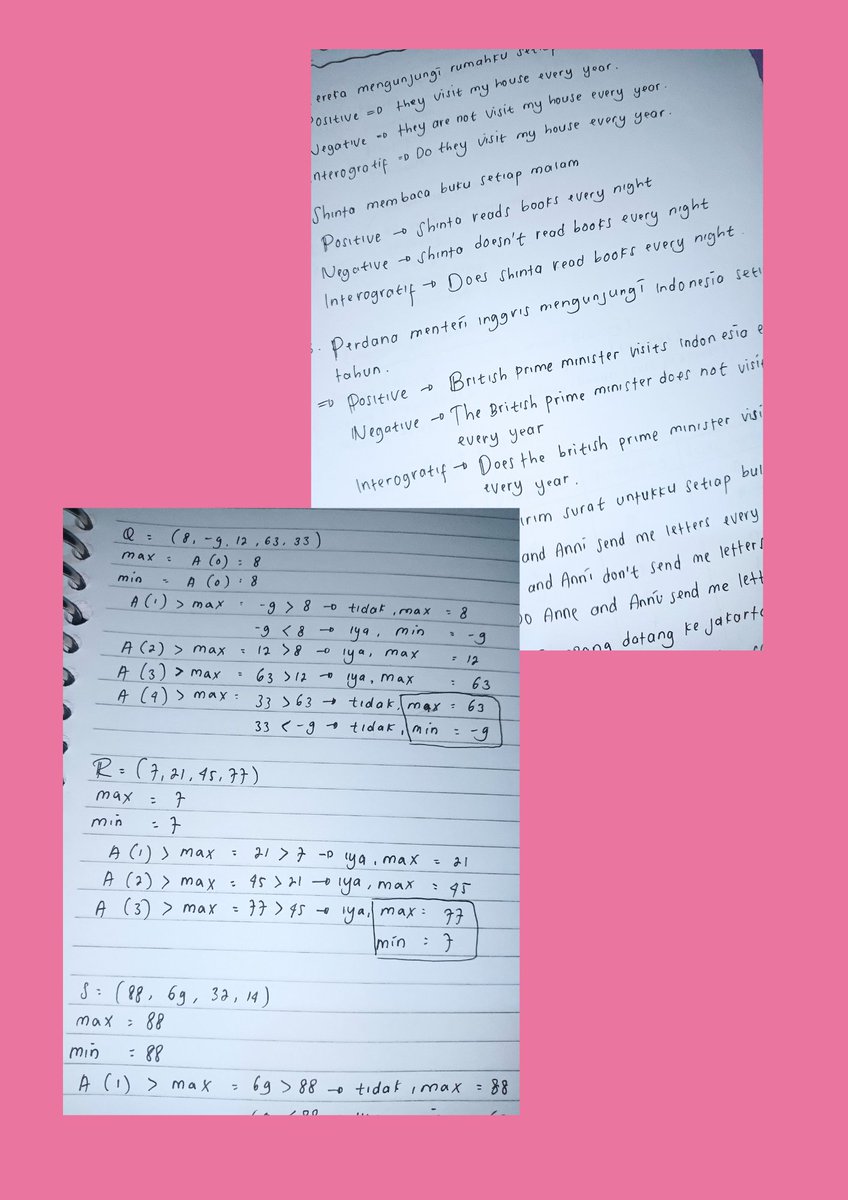 mengunjungi rumahku
Positive => they visit my house every year.
Negative => they are not visit my house every year.
Interogratif => Do they visit my house every year.
Shinta membaca buku setiap malam
Positive → Shinta reads books every night
Negative → Shinta doesn't read books every night
Interogratif → Does Shinta read books every night.
Perdana menteri inggris mengunjungi Indonesia
tahun.
=> Positive → British prime minister visits Indonesia
Negative → The British prime minister does not
every year
Interogratif → Does the british prime minister
every year.
surat untukku setiap
and Anni send me letters every
and Anni don't send me letters
Anne and Anni send me
datang ke Jakarta
Q = (8, -9, 12, 63, 33)
max = A (0) = 8
min = A (0) = 8
A (1) > max = -9 > 8 → tidak, max = 8
-9 < 8 → iya, min = -9
A (2) > max = 12 > 8 → iya, max = 12
A (3) > max = 63 > 12 → iya, max = 63
A (4) > max = 33 > 63 → tidak, max = 63
33 < -9 → tidak, min = -9
R = (7, 21, 45, 77)
max = 7
min = 7
A (1) > max = 21 > 7 → iya, max = 21
A (2) > max = 45 > 21 → iya, max = 45
A (3) > max = 77 > 45 → iya, max = 77
min = 7
S = (88, 69, 32, 14)
max = 88
min = 88
A (1) > max = 69 > 88 → tidak, max = 88